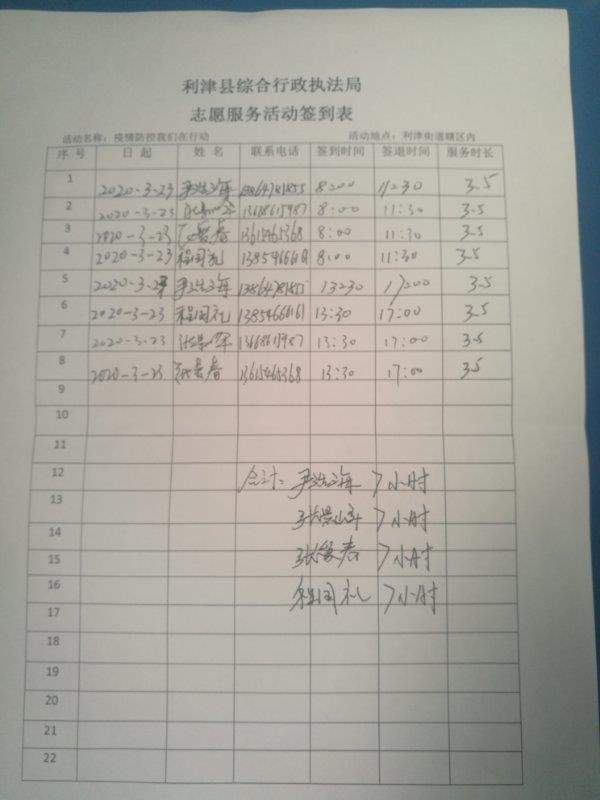 利津县综合行政执法局
志愿服务活动签到表
活动名称：疫情防控我们在行动 活动地点：利津街道辖区内
序号 日起 姓名 联系电话 签到时间 签退时间 服务时长
1 2020-3-23 海 8:00 11:30 3.5
2 2020-3-23 8:00 11:30 3.5
3 2020-3-23 春 13615465368 8:00 11:30 3.5
4 2020-3-23 程国礼 8:00 11:30 3.5
5 海 13:30 17:00 3.5
6 2020-3-23 程国礼 13854666161 13:30 17:00 3.5
7 2020-3-23 13:30 17:00 3.5
8 2020-3-23 春 13615465368 13:30 17:00 3.5
9
10
11
12 合计： 海 7小时
13 张 7小时
14
15 张 春 7小时
16 程国礼 7小时
17
18
19
20
21
22